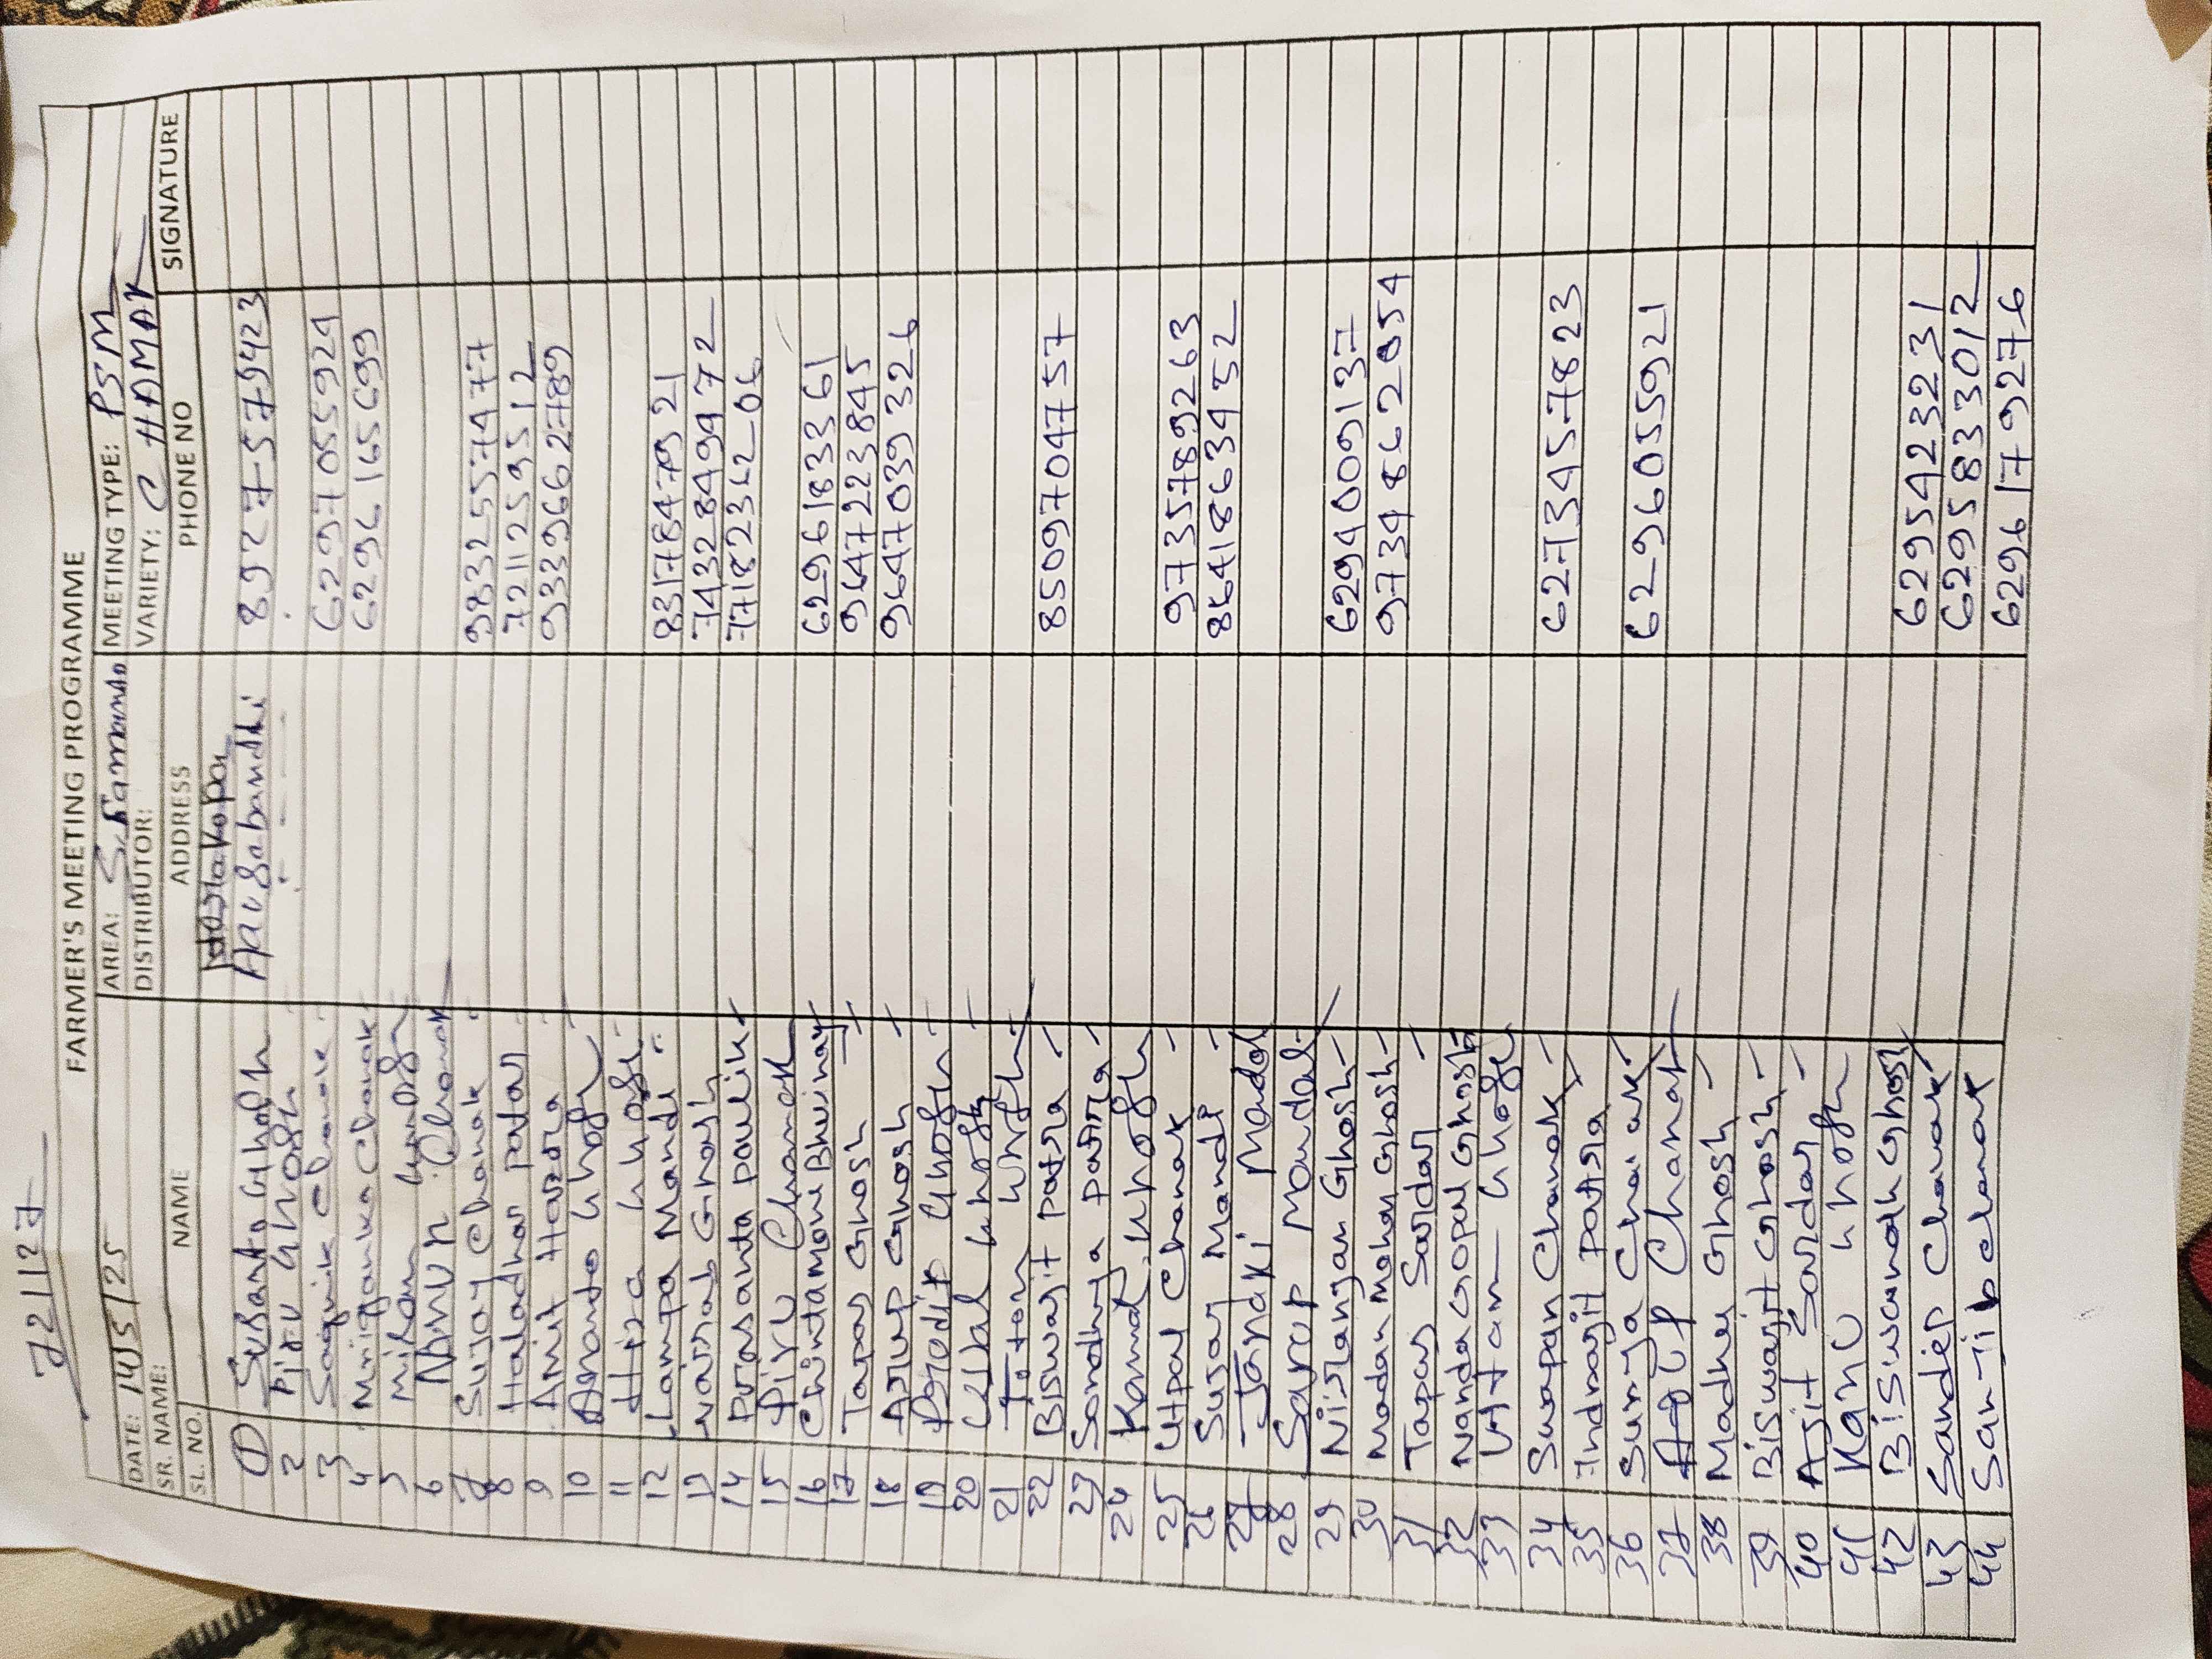 72127
FARMER'S MEETING PROGRAMME
DATE: 14/5/25 AREA: MEETING TYPE: PSM
SR. NAME: DISTRIBUTOR: VARIETY: CHAMAK
SL. NO. NAME ADDRESS PHONE NO SIGNATURE
1 Susanta Ghosh 8927579423
2 Piru Ghosh
3 Sagnik Chanak 6297055924
4 Mriganka Chanak 6296165699
5 Milan Ghosh
6 Chanak
7 Sujoy Chanak 9832557477
8 Haladhar patar 7211259512
9 Amit Hazra 9339662789
10 Ananta Ghosh
11 Hira Ghosh
12 Lampa Mandi 8317847921
13 Ghosh 7432849472
14 Prasanta paulik 7718234206
15 Piru Chanak
16 Chintamoni Bhuinay 6296183361
17 Tapas Ghosh 9647223845
18 Arup Ghosh 9647039326
19 Prodip Ghosh
20 Ghosh
21 Totan Ghosh
22 Biswajit patra 8509704757
23 Sandhya patra
24 Kamal Ghosh
25 Utpal Chanak 9735789263
26 Susar Mandi 8641863452
27 Janaki Mandal
28 Sarup Mondal
29 Niranjan Ghosh 6294009137
30 Madan Mohan Ghosh 9734862054
31 Tapas Sardar
32 Nanda Gopal Ghosh
33 Uttam Ghosh
34 Swapan Chanak 6273457823
35 Indrajit patra
36 Surya Chanak 6296055921
37 Arup Chanak
38 Madhu Ghosh
39 Biswajit Ghosh
40 Ajit Sardar
41 Kanu Ghosh
42 Biswanath Ghosh 6295423231
43 Sandip Chanak 6295833012
44 Sanjib chanak 6296179276